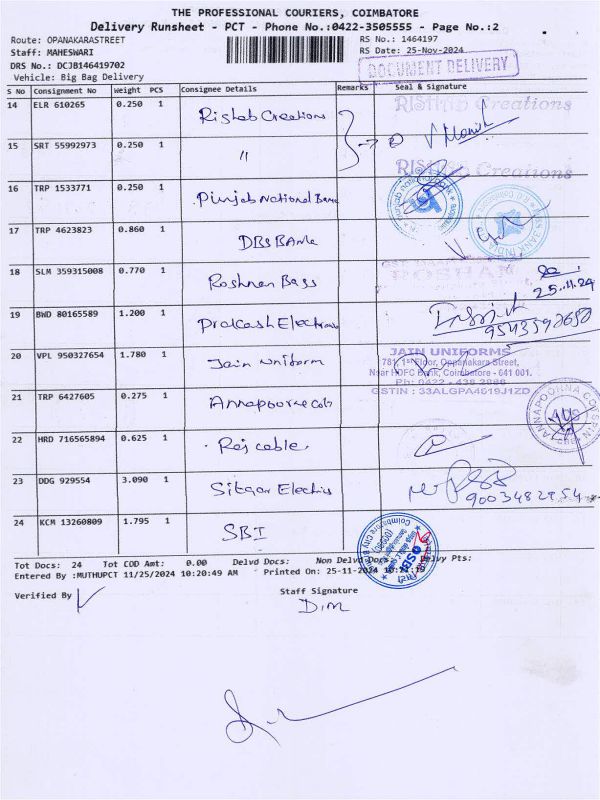 THE PROFESSIONAL COURIERS, COIMBATORE
Delivery Runsheet - PCT - Phone No.:0422-3505555 - Page No.:2
Route: OPANAKARASTREET RS No.: 1464197
Staff: MAHESWARI RS Date: 25-Nov-2024
DRS No.: DCJB146419702 DOCUMENT DELIVERY
Vehicle: Big Bag Delivery
S No Consignment No Weight PCS Consignee Details Remarks Seal & Signature
14 ELR 610265 0.250 1 Rishab Creations RISHAB Creations
15 SRT 55992973 0.250 1 " Manish
RISHAB Creations
16 TRP 1533771 0.250 1 Punjab National Bank
17 TRP 4623823 0.860 1 DBS Bank
18 SLM 359315008 0.770 1 Roshnan Bags ROSHAN
25.11.24
19 BWD 80165589 1.200 1 Prakash Electrons
20 VPL 950327654 1.780 1 Jain Uniform JAIN UNIFORMS
781, 1st Floor, Oppanakara Street,
Near HDFC Bank, Coimbatore - 641 001.
Ph: 0422 - 438 2888
GSTIN : 33ALGPA4619J1ZD
21 TRP 6427605 0.275 1 Annapoorne Cob
22 HRD 716565894 0.625 1 Raj cable
23 DDG 929554 3.090 1 Sitgar Electrics
9003482954
24 KCM 13260809 1.795 1 SBI
Tot Docs: 24 Tot COD Amt: 0.00 Delvd Docs: Non Delvd Docs: Delvy Pts:
Entered By :MUTHUPCT 11/25/2024 10:20:49 AM Printed On: 25-11-2024 10:21:19
Verified By Staff Signature